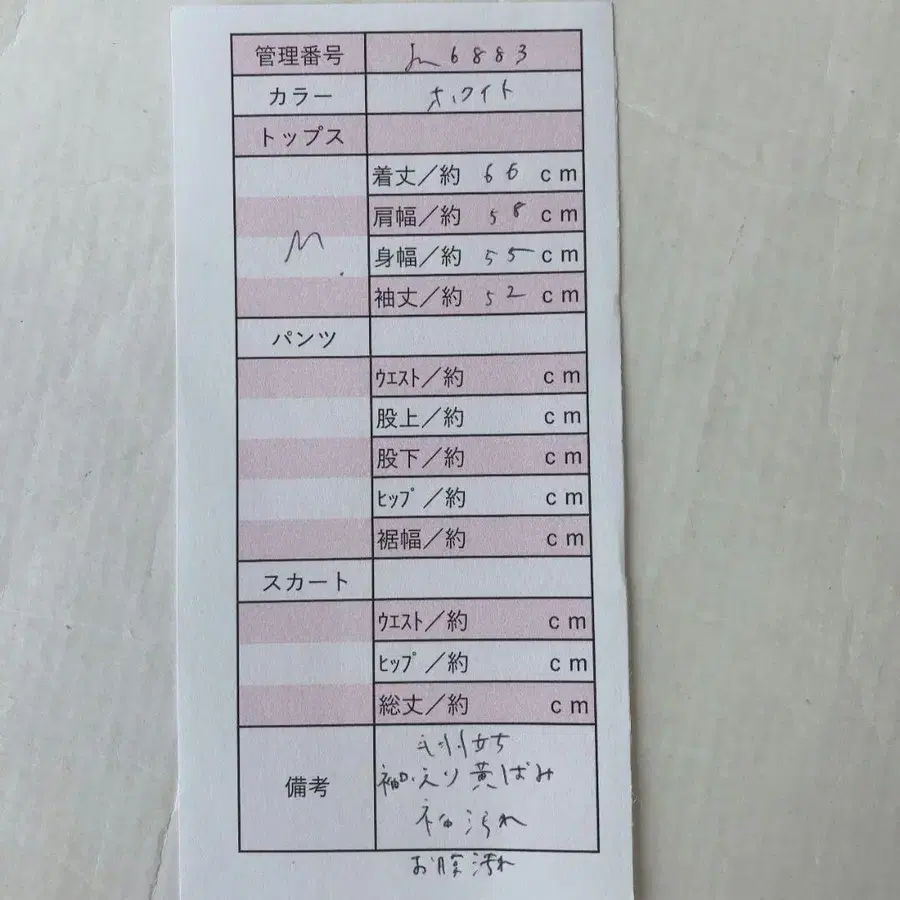 管理番号 Jn 6883
カラー ホワイト
トップス
M.
着丈／約 66 cm
肩幅／約 58 cm
身幅／約 55 cm
袖丈／約 52 cm
パンツ
ｳｴｽﾄ／約 cm
股上／約 cm
股下／約 cm
ﾋｯﾌﾟ／約 cm
裾幅／約 cm
スカート
ｳｴｽﾄ／約 cm
ﾋｯﾌﾟ／約 cm
総丈／約 cm
備考
袖口.えり黄ばみ
袖汚れ
お腹汚れ